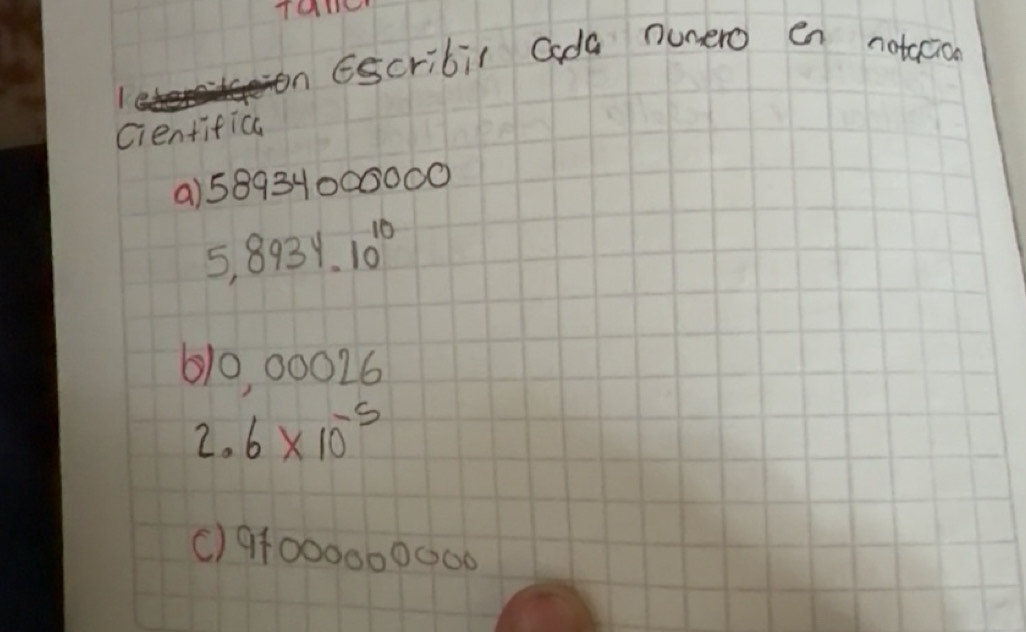 1 Escribir Cada numero en notacion
Cientifica
a) 58934000000
5,8934.10¹⁰
b) 0,00026
2.6 x 10⁻⁵
c) 97000000000